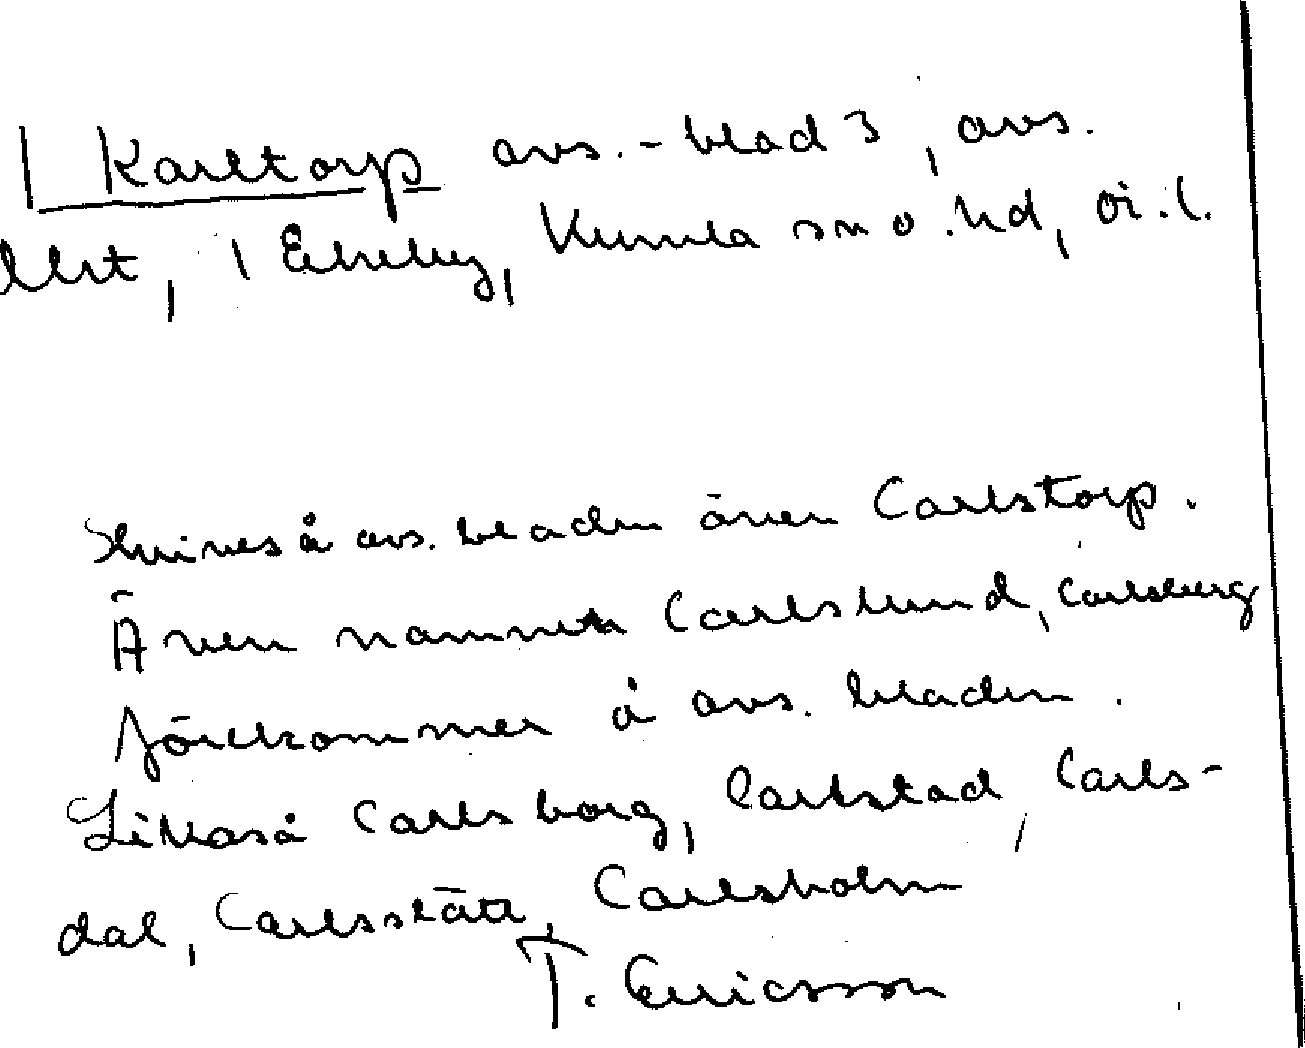 Karltorp avs.-blad 3, avs.
, i Ekeby, Kumla sn o. hd, Ör. l.
Skrives å avs. bladen även Carlstorp.
Även namnen Carlslund, Carlsberg
förekommer å avs. bladen.
Likaså Carlsborg, Carlstad, Carls-
dal, Carlsslätt, Carlsholm
T. Ericsson